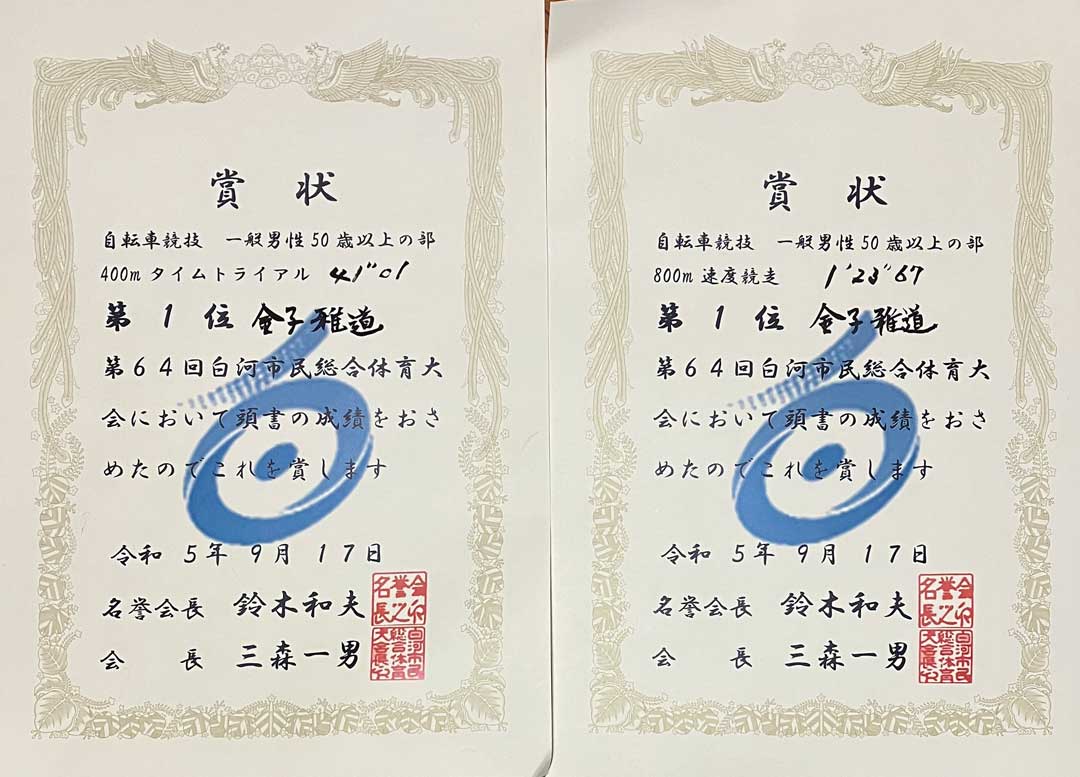 賞 状
自転車競技 一般男性50歳以上の部
400m タイムトライアル 41"01
第 1 位 金子雅道
第64回白河市民総合体育大
会において頭書の成績をおさ
めたのでこれを賞します
令和 5年 9月 17日
名誉会長 鈴木和夫
会 長 三森一男
賞 状
自転車競技 一般男性50歳以上の部
800m 速度競走 1'23"67
第 1 位 金子雅道
第64回白河市民総合体育大
会において頭書の成績をおさ
めたのでこれを賞します
令和 5年 9月 17日
名誉会長 鈴木和夫
会 長 三森一男